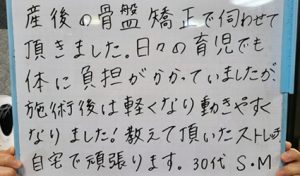 産後の骨盤矯正で伺わせて
頂きました。日々の育児でも
体に負担がかかっていましたが、
施術後は軽くなり動きやすく
なりました！教えて頂いたストレッチ
自宅で頑張ります。30代 S・M